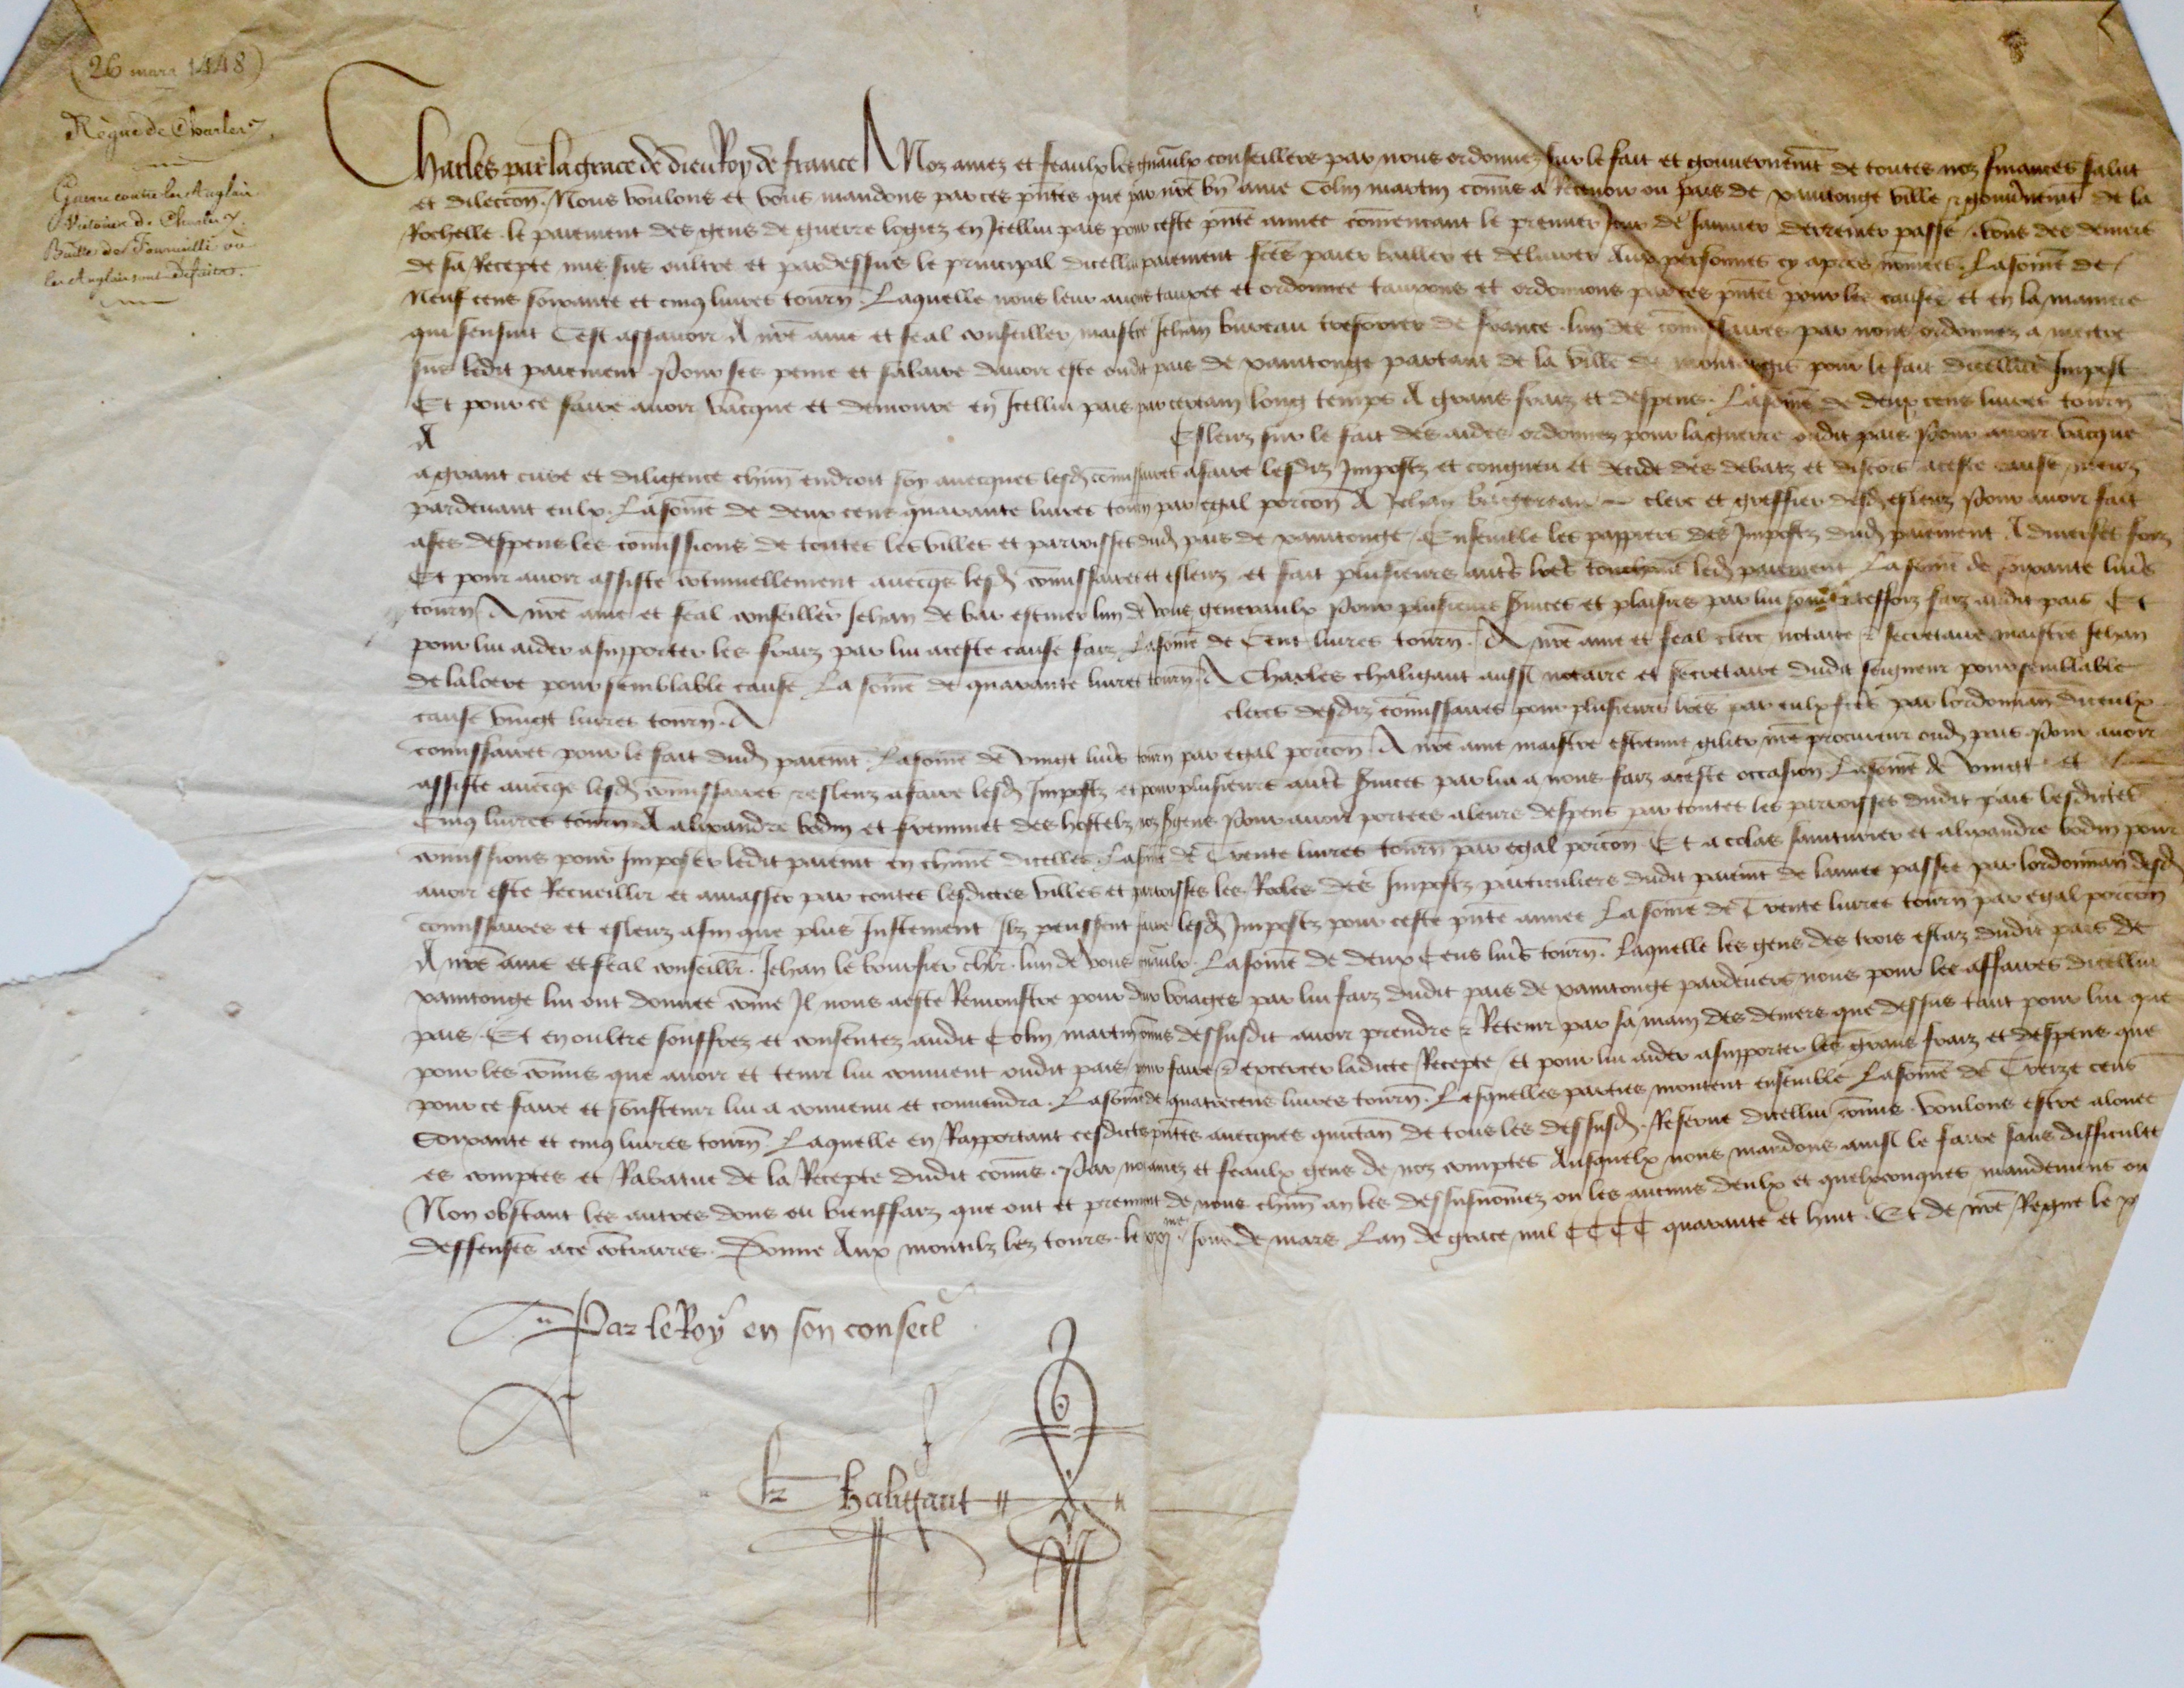 (26 mars 1448)
Règne de Charles 7.
Guerre contre les Anglais
Victoires de Charles 7.
Bataille de Fourmilli où
les Anglais sont défaites.
Charles par la grace de dieu Roy de france A Noz amez et feaulx les gnaulx conseillers par nous ordonnez sur le fait et gouvernemt de toutes noz finances salut
et dilection. Nous voulons et vous mandons par ces pntes que par nre bn ame Colin martin comis a Recevoir ou pais de xainctonge ville et gouvnemt de la
Rochelle le paiement des gens de guerre logiez en Icellui pais pour ceste pnte annee comencant le premier Jour de Janvier derrenier passe vous des deniers
de sa Recepte mis sus oultre et pardessus le principal dicellui paiement fces paier bailler et delivrer Aux personnes cy apres nomees. La some de
Neuf cens soixante et cinq livres tourn. Laquelle nous leur avons tauxee et ordonnee tauxons et ordonnons par ces pntes pour les causes et en la maniere
qui sensuit Cest assavoir A nre ame et feal conseiller maistre Jehan bureau tresorier de france lun des comissaires par nous ordonnez a mectre
sus ledit paiement Pour ses peine et salaire davoir este oudit pais de xainctonge partant de la ville de pour le fait dicellui Impost
Et pour ce faire avoir vacque et demoure en Icellui pais par certain long temps A grans fraiz et despens. La some de deux cens livres tourn
A Esleuz sur le fait des aides ordonnez pour la guerre oudit pais Pour avoir vacque
a grant cure et diligence chun endroit soy avecques lesd comissaires a faire lesdiz Impostz et congneu et decide des debatz et discors a ceste cause meuz
pardevant eulx. La some de deux cens quarante livres tourn par egal porcon A Jehan clerc et greffier desd esleuz Pour avoir fait
a ses despens les comissions de toutes les villes et parroisses dud pais de xainctonge Ensemble les pappiers des Impostz dud paiement A diverses foiz
Et pour avoir assiste continuellement avecqs lesd comissaires et esleuz et fait plusieurs autrs lres touchant led paiement La some de soixante livrs
tourn A nre ame et feal conseiller Jehan de bar escuier lun de vous generaulx Pour plusieurs svices et plaisirs par lui faiz audit pais Et
pour lui aider a supporter les fraiz par lui a ceste cause faiz La some de Cent livres tourn. A nre ame et feal clerc notaire et secretaire maistre Jehan
de la loere pour semblable cause La some de quarante livres tourn. A Charles chaligant aussi notaire et secretaire dudit seigneur pour semblable
cause vingt livres tourn. A clercs desdiz comissaires pour plusieurs lres par eulx fces par lordonnan diceulx
comissaires pour le fait dud paiemt. La some de vingt livrs tourn par egal porcon. A nre ame maistre estienne gilier nre procureur oud pais Pour avoir
assiste avecqs lesd comissaires et esleuz a faire lesd Impostz et pour plusieurs autrs svices par lui a nous faiz a ceste occasion La some de vingt et
Cinq livres tourn A alixandre bodin et freminet des hostelz noz sgens Pour avoir portees a leurs despens par toutes les parroisses dudit pais lesdictes
comissions pour Imposer ledit paiemt en chune dicelles. La some de Trente livres tourn par egal porcon Et a colas et alixandre bodin pour
avoir este Recueillir et amasser par toutes lesdictes villes et parroisses les Roolles des Impostz particuliers dudit paiemt de lannee passee par lordonnan desd
comissaires et esleuz afin que plus Justement Ilz peussent faire lesd Impostz pour ceste pnte annee La some de Trente livres tourn par egal porcon
A nre ame et feal conseillr. Jehan le boursier chlr. lun de vous gnaulx. La some de deux Cens livrs tourn. Laquelle les gens des trois estaz dudit pais de
xainctonge lui ont donnee come Il nous a este Remonstre pour deux voiages par lui faiz dudit pais de xainctonge pardevers nous pour les affaires dicellui
pais. Et en oultre souffrez et consentez audit Colin martin comis dessusdit avoir prendre et Retenir par sa main des deniers que dessus tant pour lui que
pour les comis que avoir et tenir lui convient oudit pais pour faire et excercer ladicte Recepte et pour lui aider a supporter les grans fraiz et despens que
pour ce faire et soustenir lui a convenu et convendra. La some de quatrecens livres tourn. Lesquelles parties montent ensemble La some de Treize cens
Soixante et cinq livres tourn Laquelle en Rapportant cesdictes pntes avecques quictan de tous les dessusd. Reserve dicellui comis. voulons estre alouee
es comptes et Rabatue de la Recepte dudit comis. Par noz amez et feaulx gens de noz comptes Ausquelx nous mandons ainsi le faire sans difficulte
Non obstant les autres dons ou bienffaiz que ont et prennent de nous chun an les dessusnomez ou les aucuns deulx et quelxconques mandemens ou
deffenses a ce contraires. Donne Aux montilz lez tours le xxvjme Jour de mars Lan de grace mil CCCC quarante et huit. Et de nre Regne le
Par le Roy en son conseil
Chaligaut